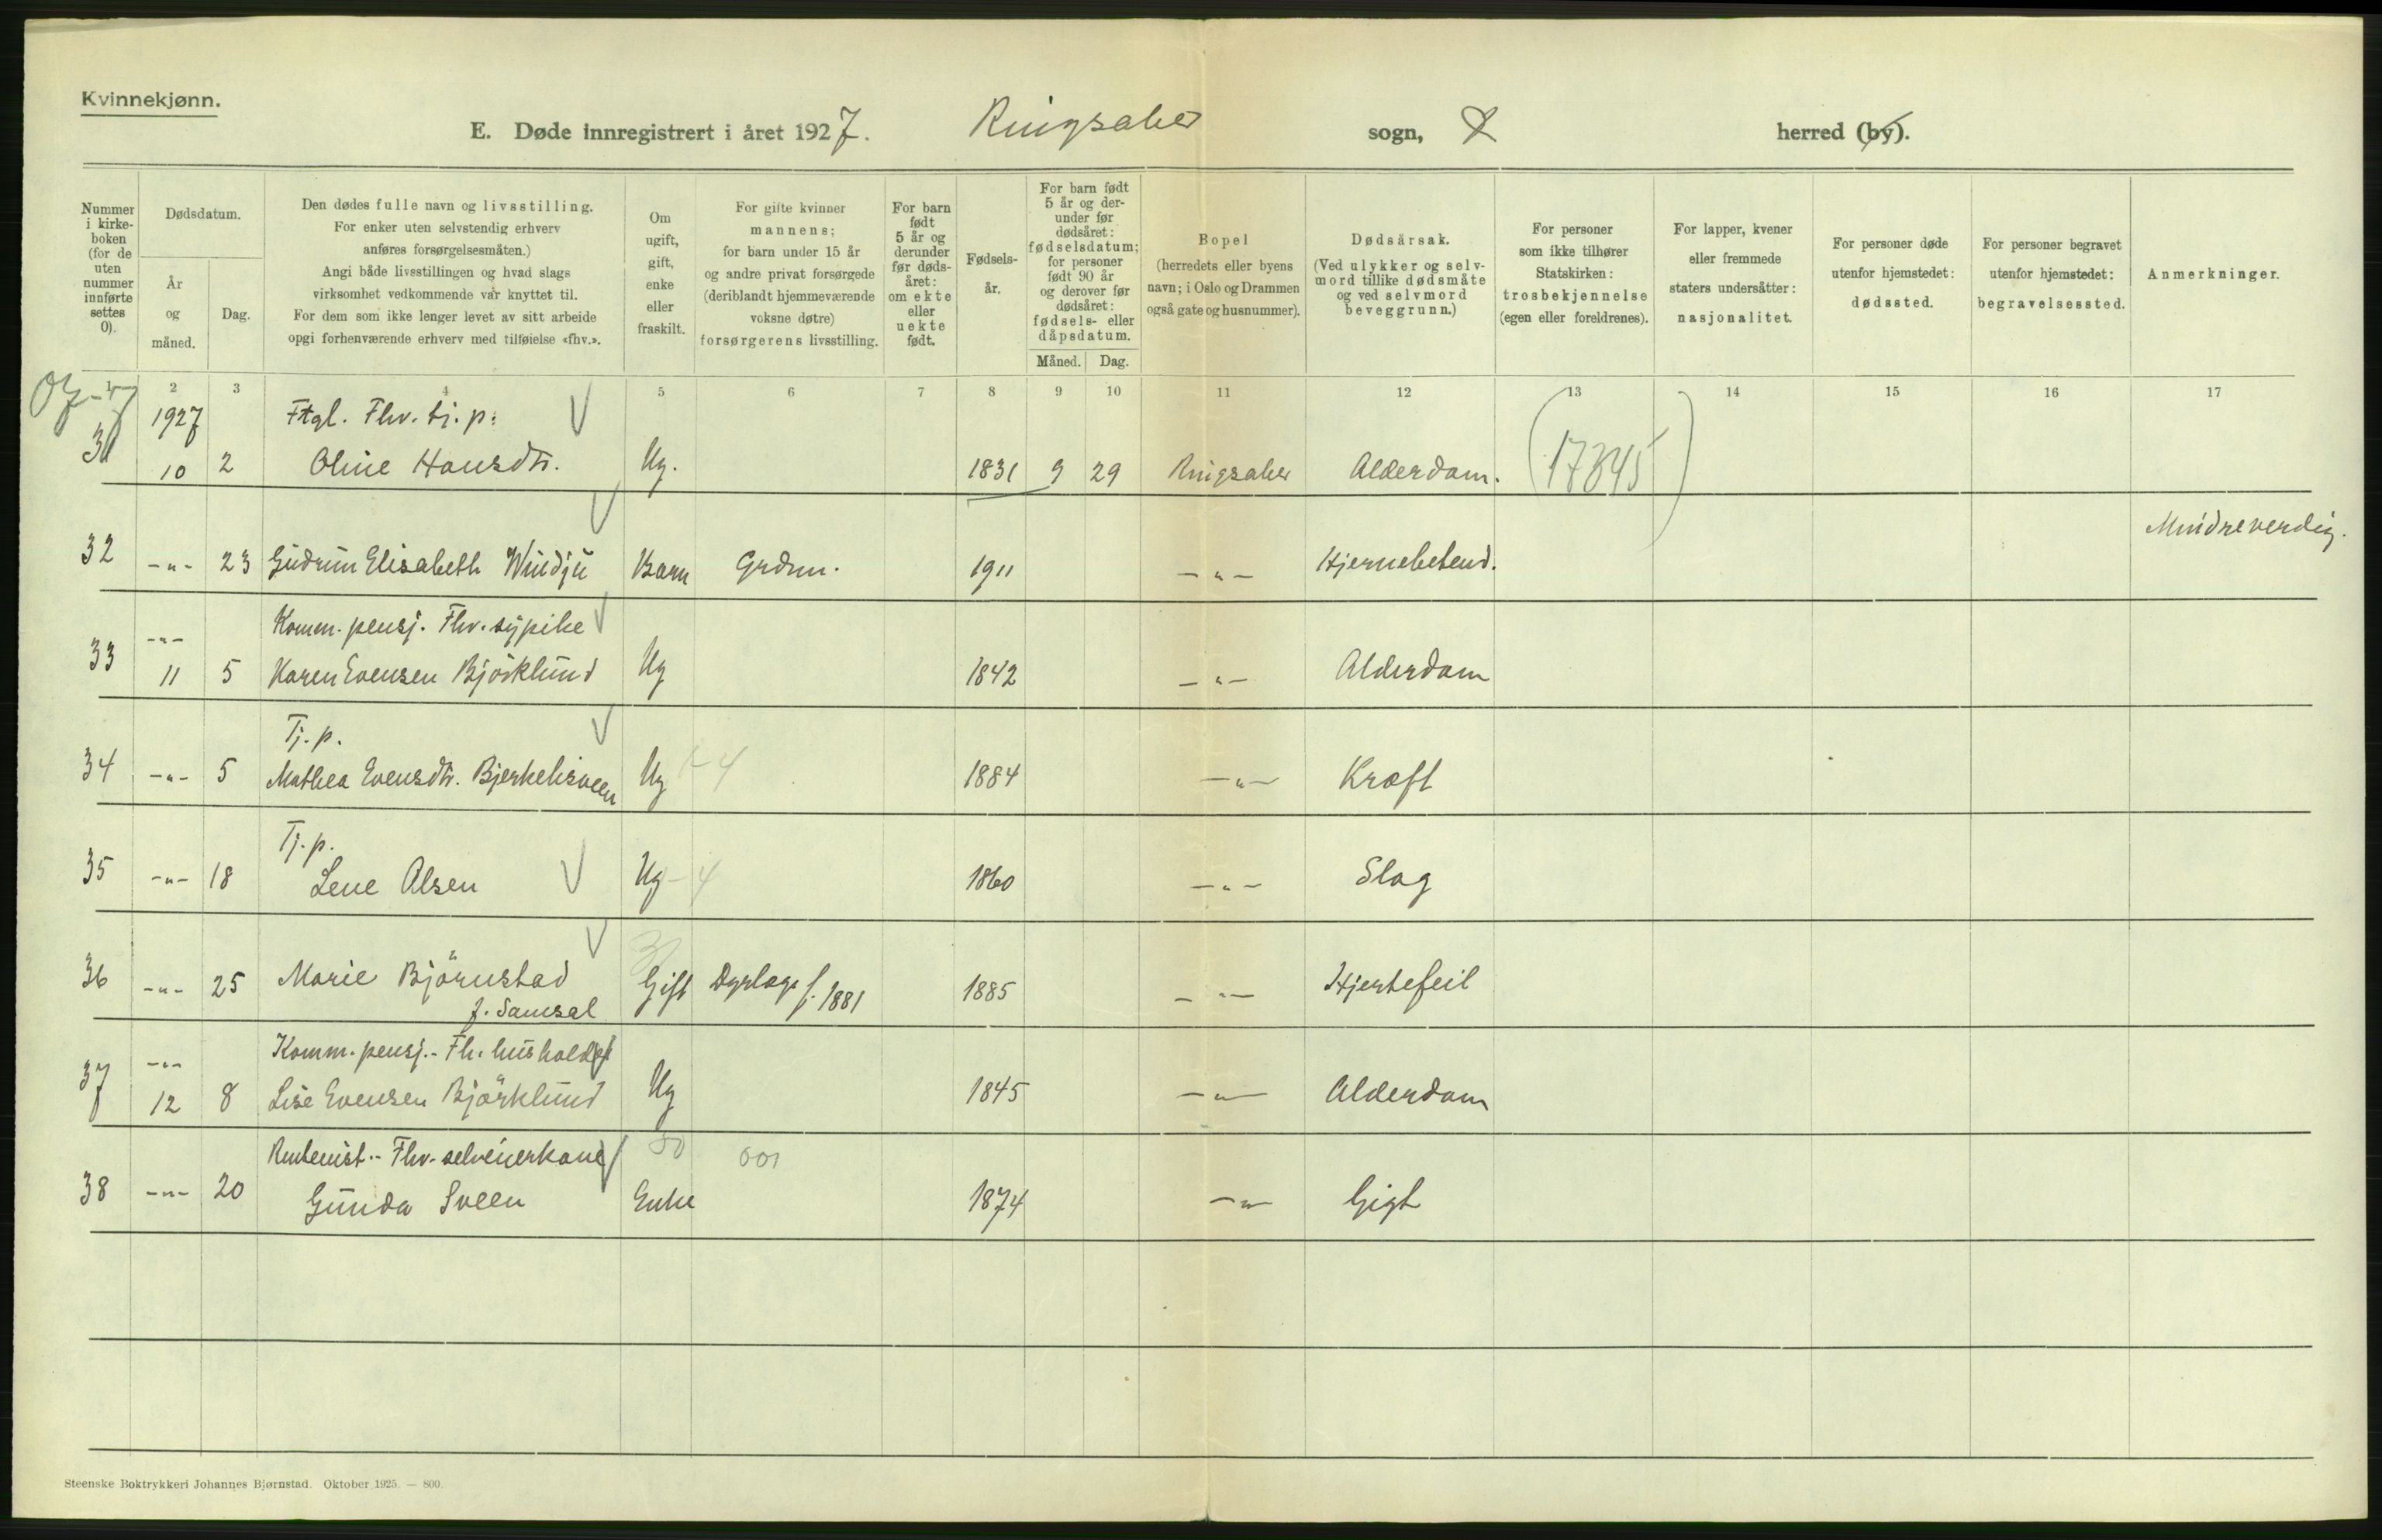 Kvinnekjønn.
E. Døde innregistrert i året 1927. Ringsaker sogn, herred (by).
Nummer i kirke- boken (for de uten nummer innførte settes 0).
Dødsdatum.
År og måned.
Dag.
Den dødes fulle navn og livsstilling.
For enker uten selvstendig erhverv
anføres forsørgelsesmåten.)
Angi både livsstillingen og hvad slags
virksomhet vedkommende var knyttet til.
For dem som ikke lenger levet av sitt arbeide
opgi forhenværende erhverv med tilføielse «fhv.».
Om ugift, gift, enke eller fraskilt.
For gifte kvinner
mannens;
for barn under 15 år
og andre privat forsørgede
(deriblandt hjemmeværende
voksne døtre)
forsørgerens livsstilling.
For barn født 5 år og derunder før døds- året: om ekte eller uekte født.
Fødsels- år.
For barn født 5 år og der- under før dødsåret: fødselsdatum; for personer født 90 år og derover før dødsåret: fødsels- eller dåpsdatum.
Måned. Dag.
Bopel
(herredets eller byens
navn; i Oslo og Drammen
også gate og husnummer).
Dødsårsak.
(Ved ulykker og selv-
mord tillike dødsmåte
og ved selvmord
beveggrunn.)
For personer
som ikke tilhører
Statskirken:
trosbekjennelse
(egen eller foreldrenes).
For lapper, kvener
eller fremmede
staters undersåtter:
nasjonalitet.
For personer døde
utenfor hjemstedet:
dødssted.
For personer begravet
utenfor hjemstedet:
begravelsessted.
Anmerkninger.
1 2 3 4 5 6 7 8 9 10 11 12 13 14 15 16 17
1927 Ftgl. Fhv. tj. p.
31 10 2 Oline Hansdtr. Ug. 1831 9 29 Ringsaker Alderdom. (17345)
Mindreverdig.
32 -"- 23 Gudrun Elisabeth Windju Barn Grdm. 1911 -"- Hjernebetend.
-"- Komm. pensj. Fhv. sypike
33 11 5 Karen Evensen Björklund Ug 1842 -"- Alderdom
Tj. p.
34 -"- 5 Mathea Evensdtr. Bjerkelisveen Ug 4 1884 -"- Kræft
Tj. p.
35 -"- 18 Lene Olsen Ug - 4 1860 -"- Slag
36 -"- 25 Marie Björnstad Gift Dyrlæge f. 1881 1885 -"- Hjertefeil
f. Samsal
-"- Komm. pensj. - Fh. hushold.
37 12 8 Lise Evensen Björklund Ug 1845 -"- Alderdom
Rentenist. - Fhv. selveierkone 001
38 -"- 20 Gunda Sveen Enke 1874 -"- Gigt
Steenske Boktrykkeri Johannes Bjørnstad. Oktober 1925. — 800.